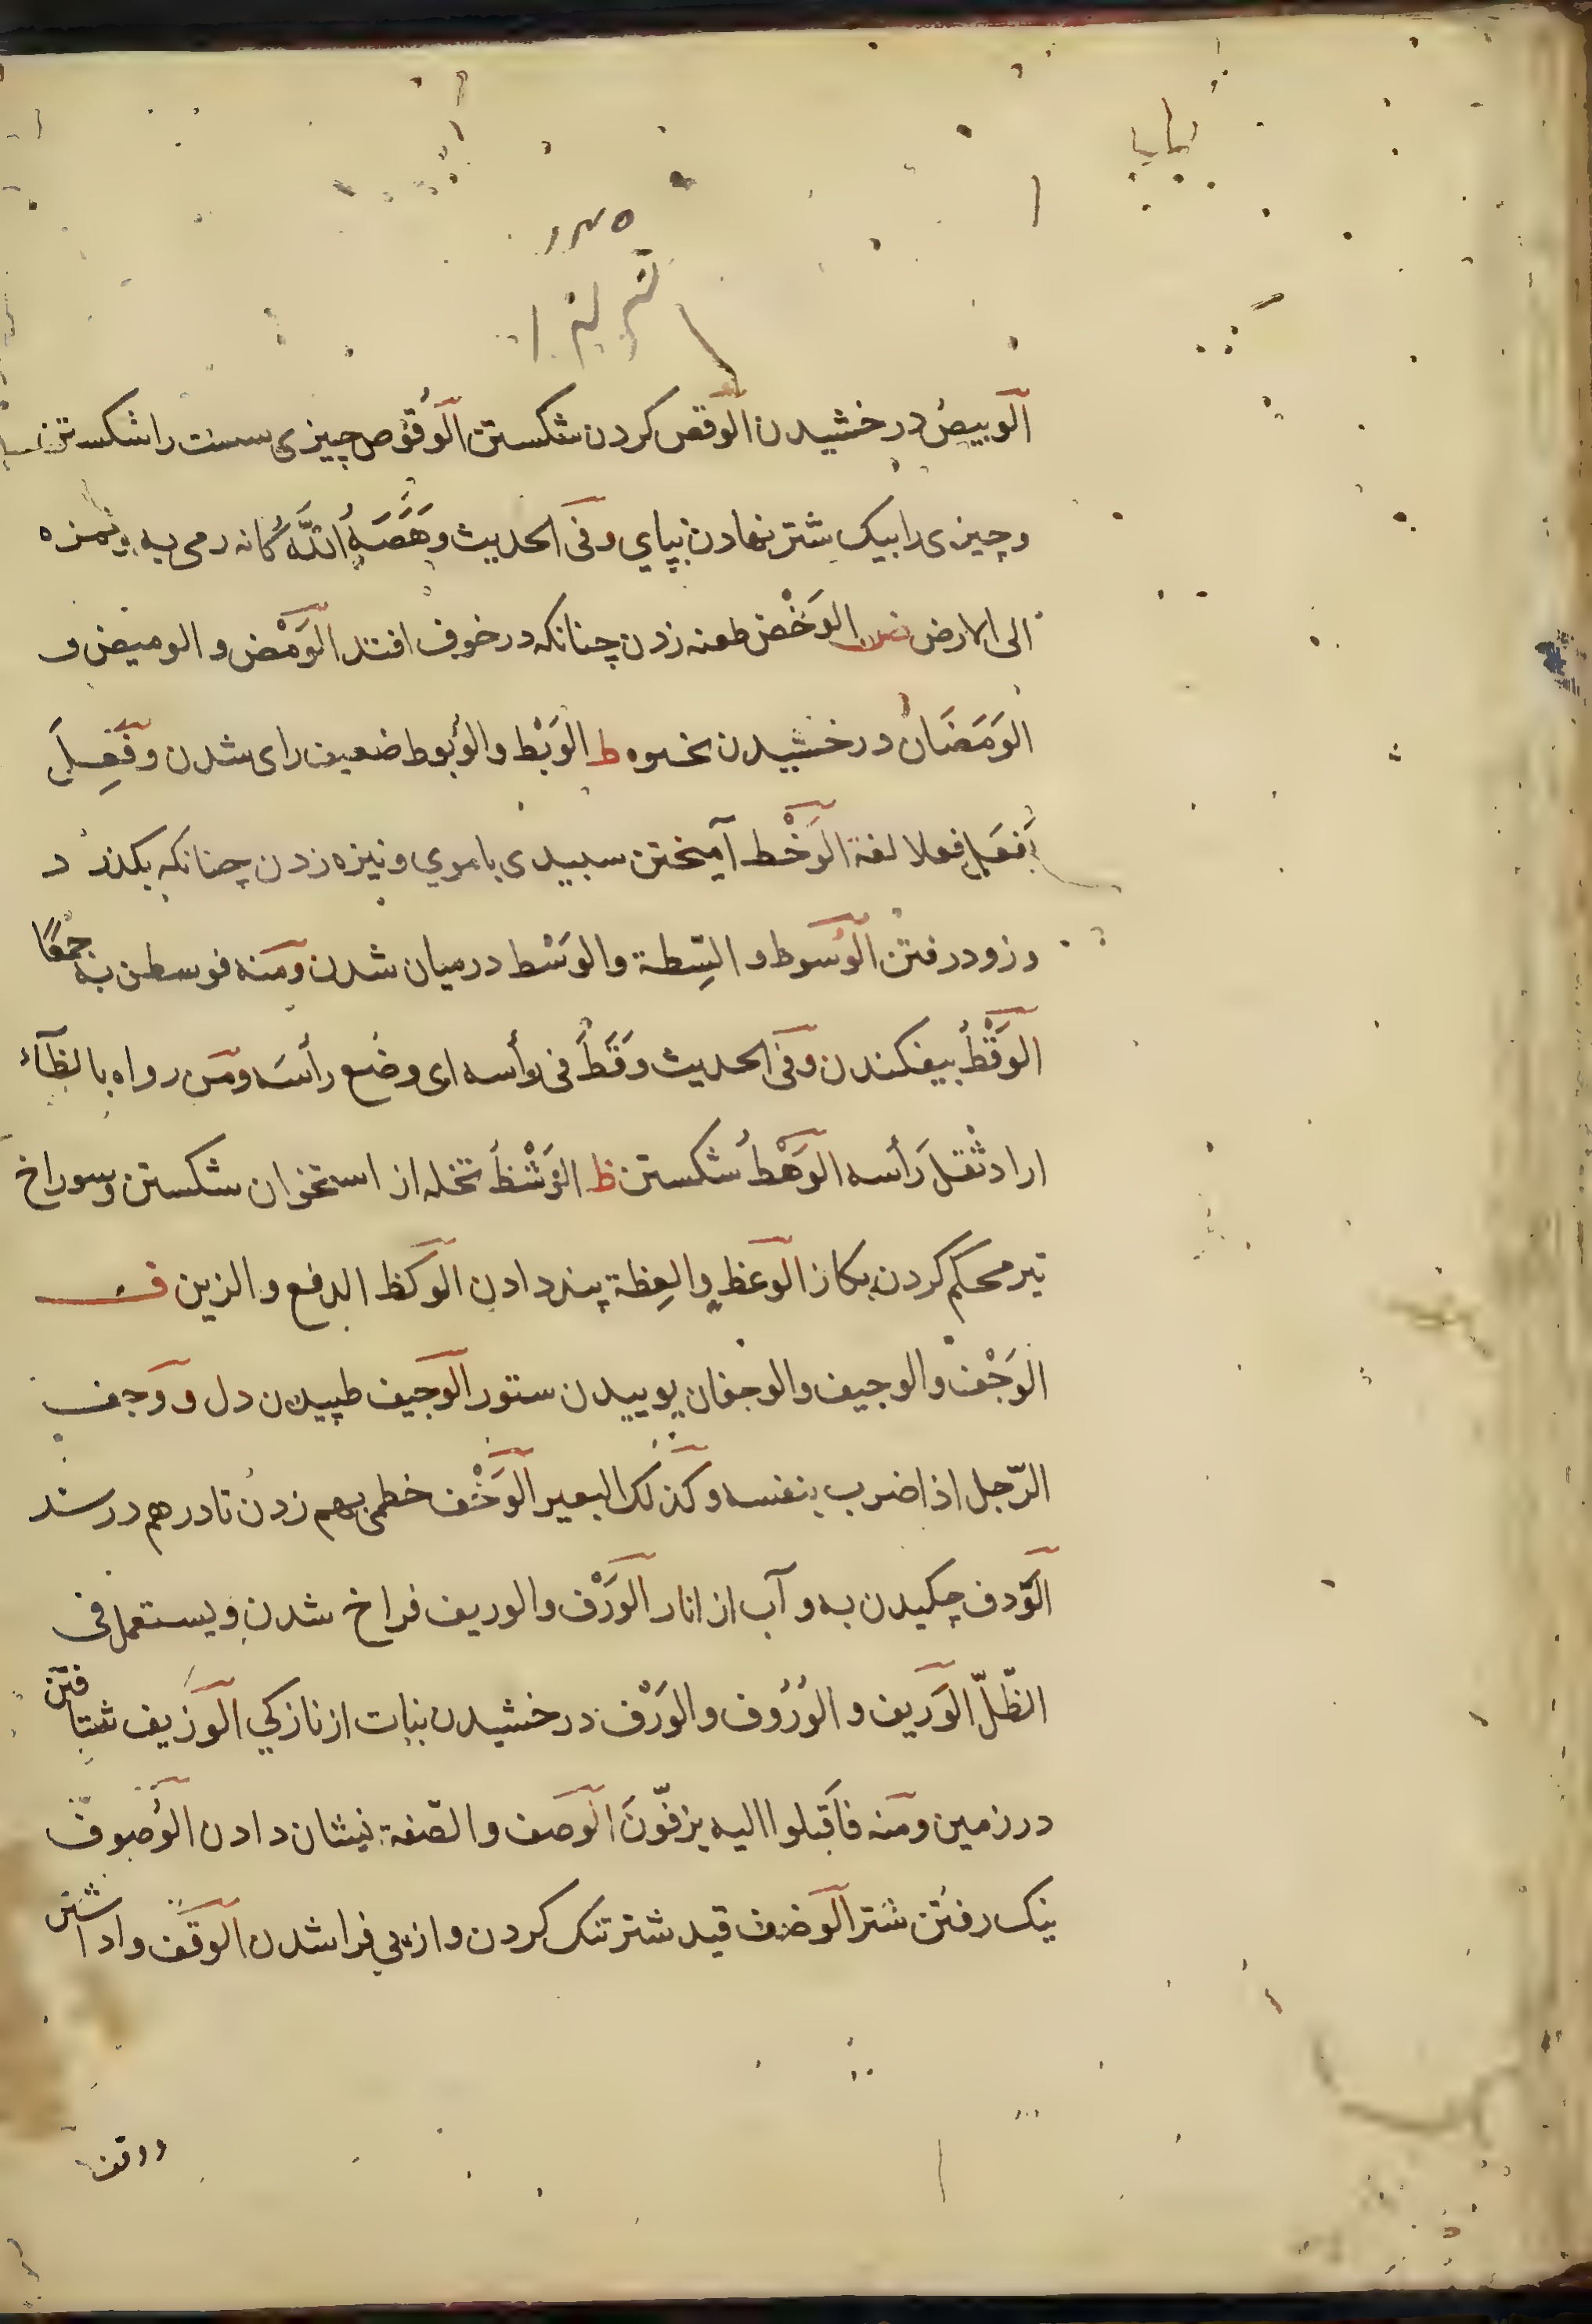 الوبيصُ درخشیدن الوقص کردن شکستن الوُقوُص چیزی سست را شکستن
و چیزی را بیک شتر نهادن بپای وفی الحدیث وَهَصَهُ اللَّهُ کانه رمی به وغمزه
الی الارض ض الوَخْض طعنه زدن چنانکه در خوف افتد الوَمْض والومیض و
الوَمَضَانُ درخشیدن نخوه ط الوَبْط والوُبوط ضعیف رای شدن وفَعِلَ
یَفعَل فعلا لغة الوَخْط آمیختن سبیدی باموی ونیزه زدن چنانکه بکذرد
و زود رفتن الوُسوط و السِّطة والوَسْط درمیان شدن ومنه فوسطن به جمعًا
الوَقْطُ بیفکندن وفی الحدیث وَقَطَ فی رأسه ای وضع رأسَه ومَن رواه بالظآء
اراد ثقلَ رَأسه الوَهْطُ شکستن ظ الوَشْظُ تخله از استخوان شکستن وسوراخ
تیر محکم کردن بکاز الوعظ والعِظة پند دادن الوکظ الدفع والزین ف
الوَجْف والوجیف والوجفان پوییدن ستور الوجیف طپیدن دل ووجف
الرّجل اذا ضرب بنفسه وکذلک البعیر الوَخْف خطمی بهم زدن تا درهم درسند
الوَدف چکیدن به و آب از انار الوَرْف والوریف فراخ شدن ویستعمل فی
الظّلّ الوَریف و الوُرُوف والوَرْف درخشیدن نبات از نازکی الوَزیف شتافتن
درزمین ومنه فاَقبلوا الیه یزفّونَ الوصف والصّفة نیشان دادن الوُصوف
نیک رفتن شتر الوَضف قید شتر تنک کردن وازپی فراشدن الوقَف واداشتن